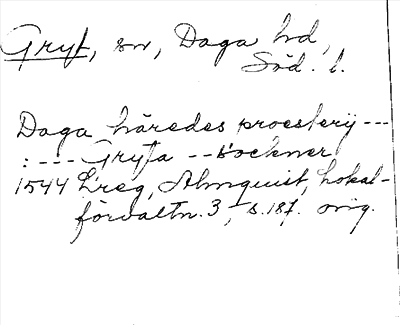 Gryt, sn, Daga hd,
Söd. l.
Daga häredes proesterij ---
: --- Gryta -- sockner
1544 Lreg, Almquist, Lokal-
förvaltn. 3, s. 187. orig.